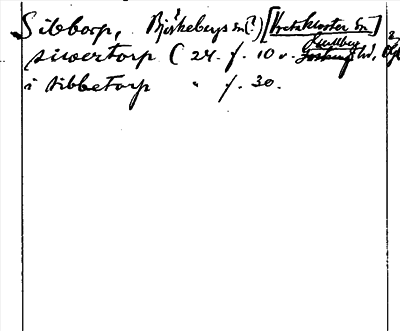 Sibborp, Björkebergs sn(?) [Vretakloster sn]
siwertorp (24. f. 10 v. Gullberg hd, Ög
i sibbetorp " f. 30.